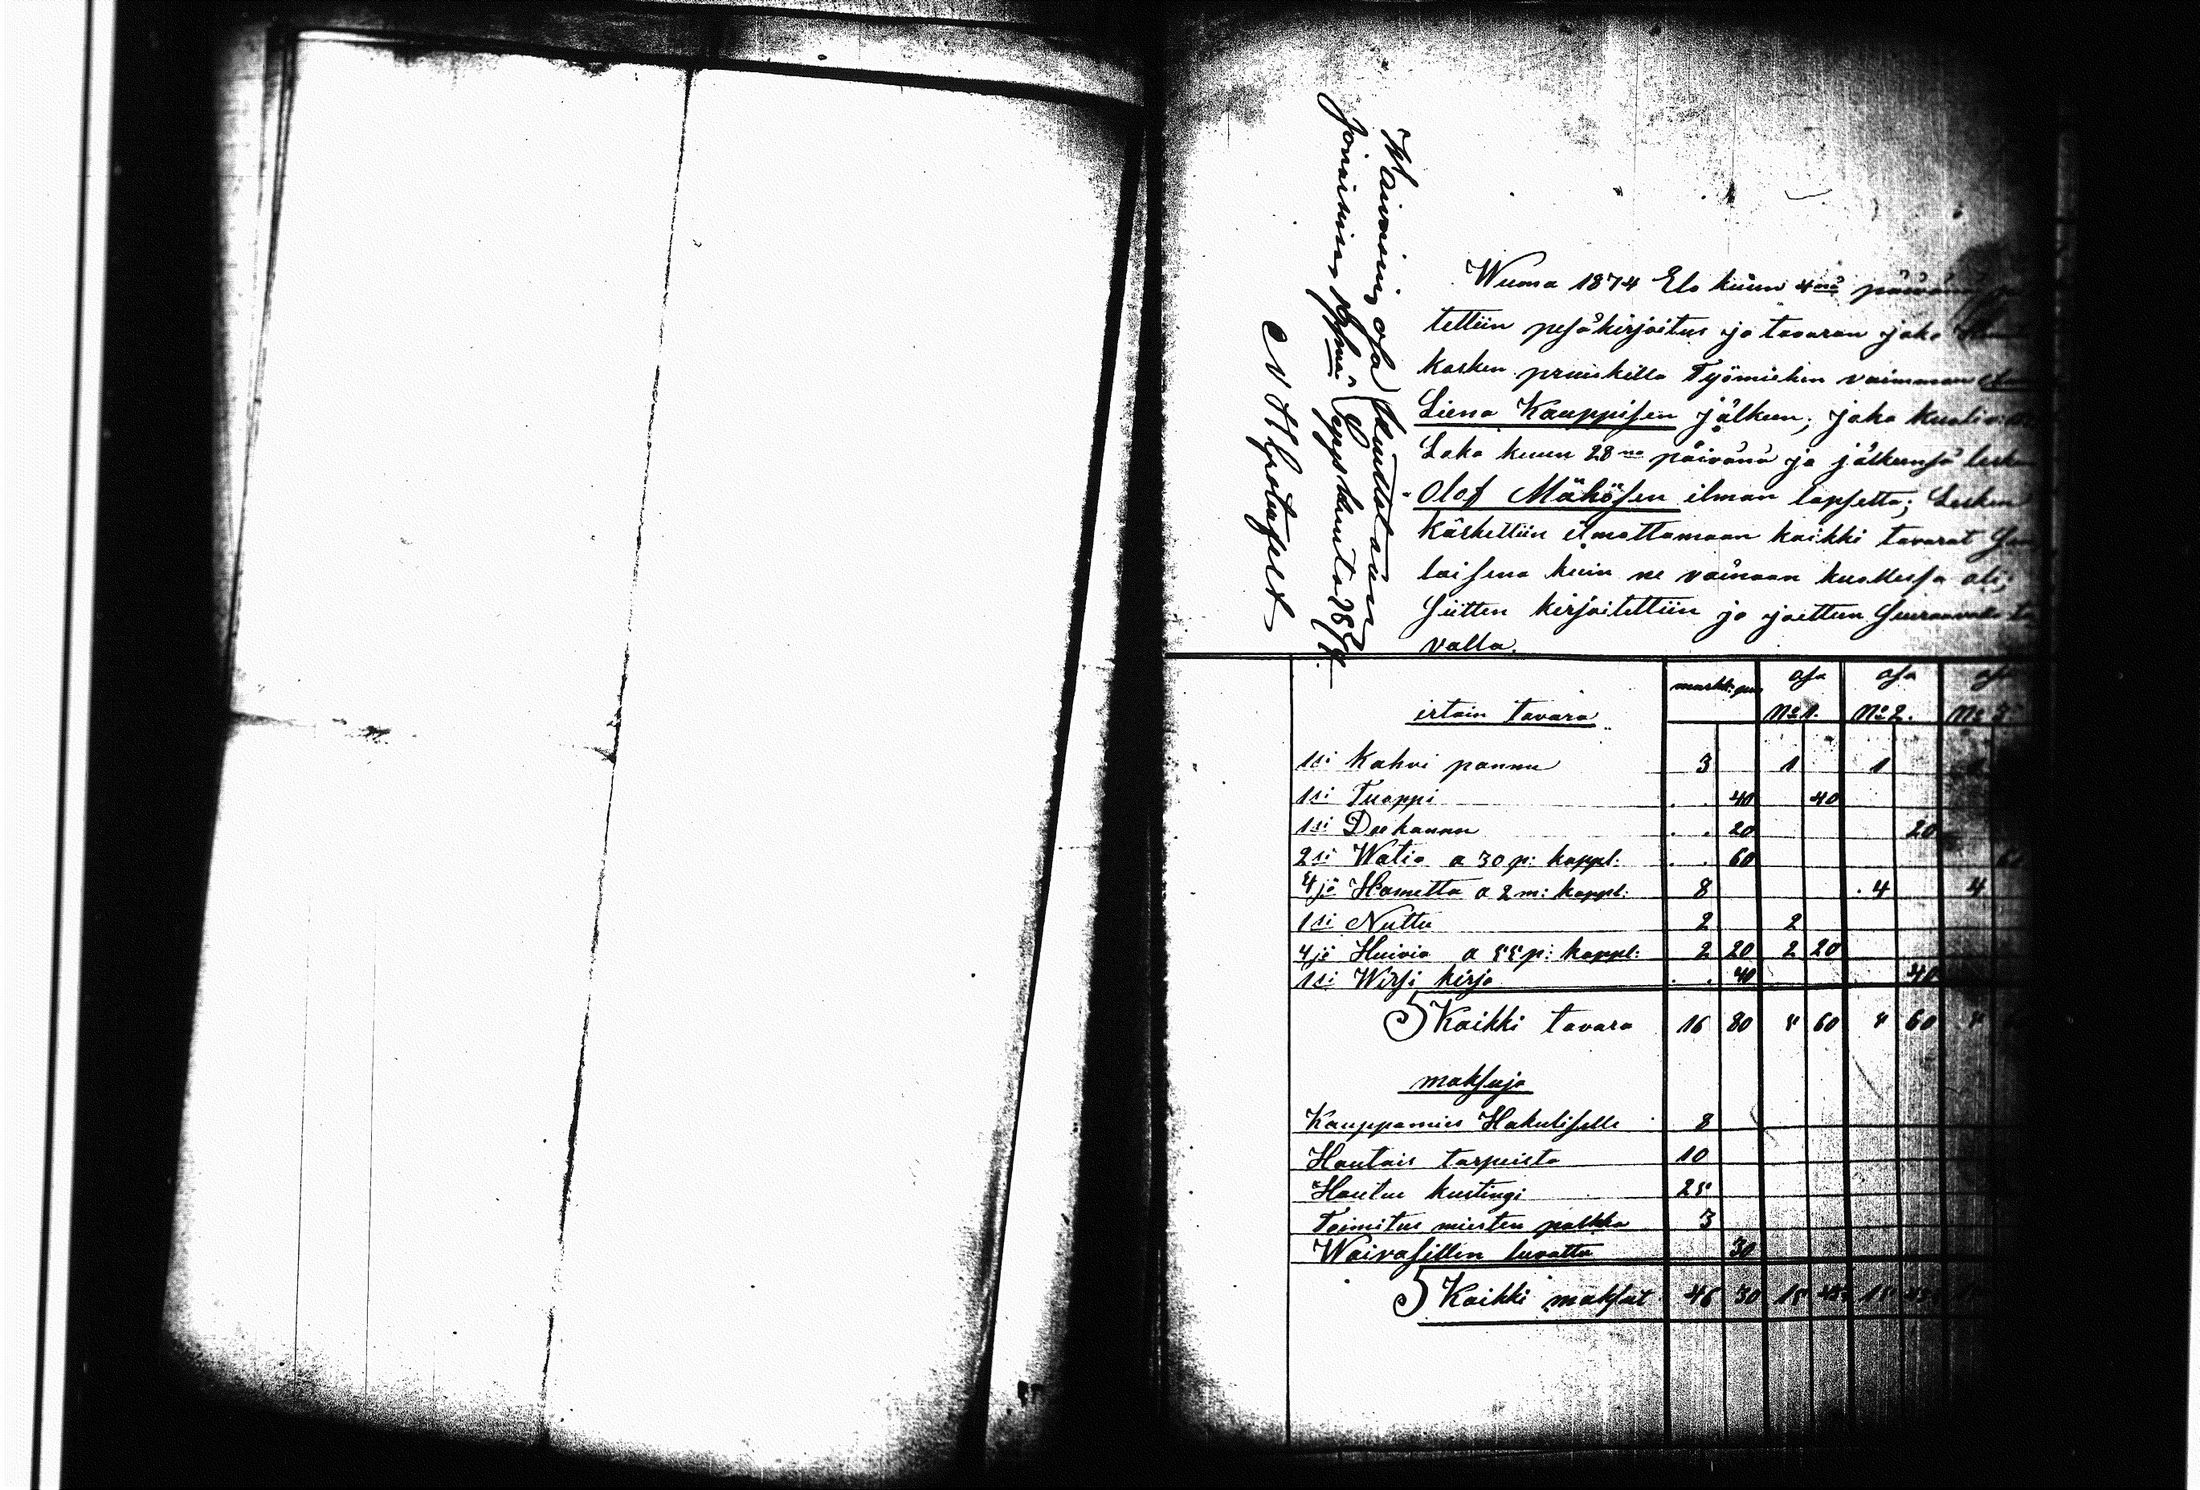 Waivaisin osa kuitataan
Joroisissa Syyskuuta 1874
Wuona 1874 Elo kuun 4nä päivänä
tettiin pesäkirjoitus ja tavaran jako
kosken pruukilla Työmiehen vaimonvainaan
Liena Kauppisen jälkeen, joka kuoli
Loka kuun 28na päivänä ja jälkeensä lesken
Olof Mähösen ilman lapsetta; Lesken
käskettiin ilmottamaan kaikki tavarat
laisena kuin ne vainaan kuollessa oli;
Siitten kirjoitettiin ja jaettiin Seuraavalla ta
valla.
irtain tavara markk: pen osa No 1. osa No 2. osa No 3
1si Kahvi pannu 3 1 1 1
1si Tuoppi . . 40 40
1si Teekannu . . 20 20
2si Watia a 30 p: kappl: . . 60
4jä Hametta a 2 m: kappl: 8 4 4
1si Nuttu 2 2
4jä Huivia a 55 p: kappl: 2 20 2 20
1si Wirsi kirja . . 40 40
S Kaikki tavara 16 80 5 60 5 60 5
maksuja
Kauppamies Hakuliselle 8
Hautais tarpeista 10
Hautus kustingi 25
Toimitus miesten palkka 3
Waivasillen luvattu 30
S Kaikki maksut 46 30 15 15